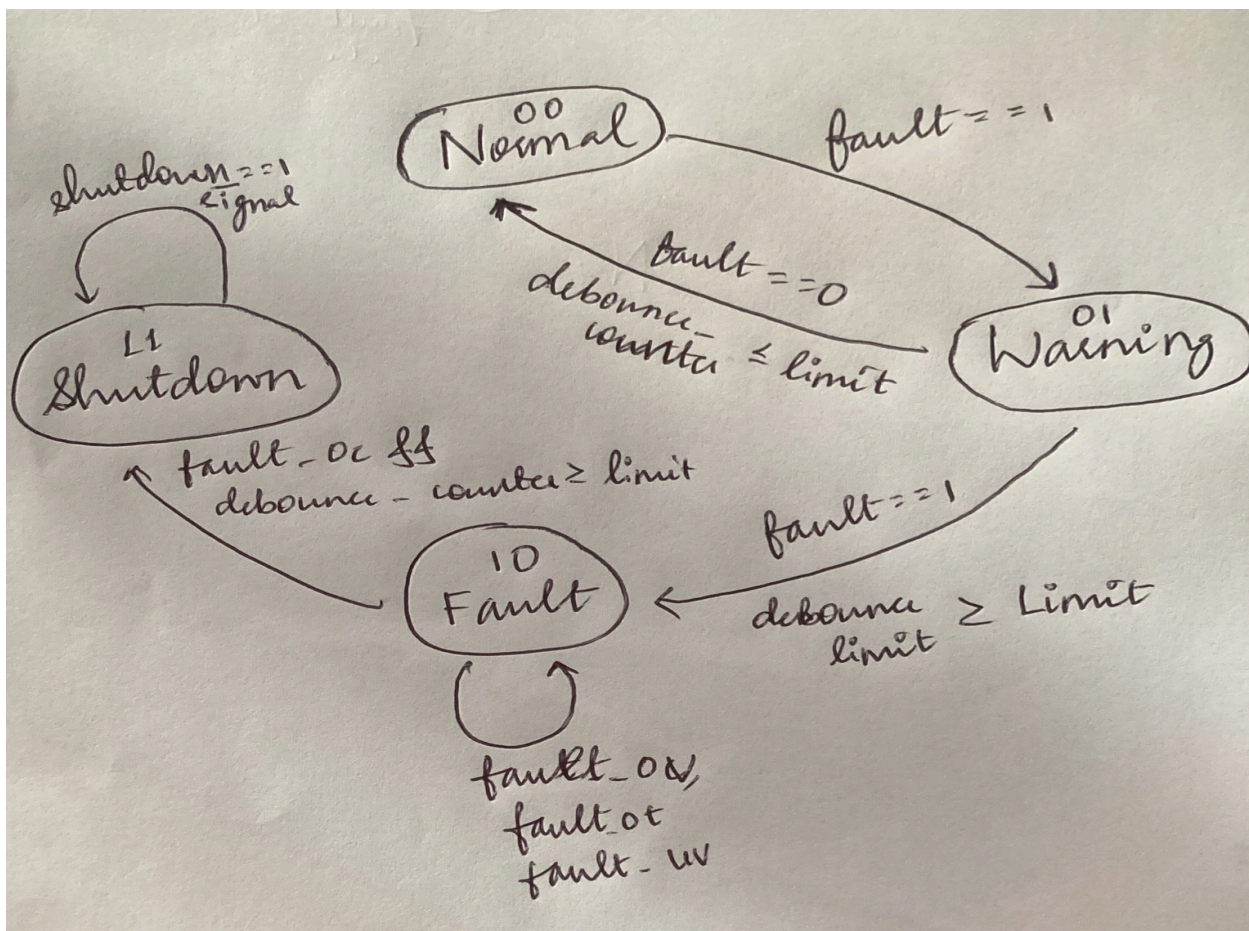 00
Normal
fault == 1
shutdown == 1
signal
fault == 0
debounce_
counter ≤ limit
01
Warning
11
Shutdown
fault_oc &&
debounce_counter ≥ limit
fault == 1
debounce ≥ Limit
limit
10
Fault
fault_ov,
fault_ot
fault_uv